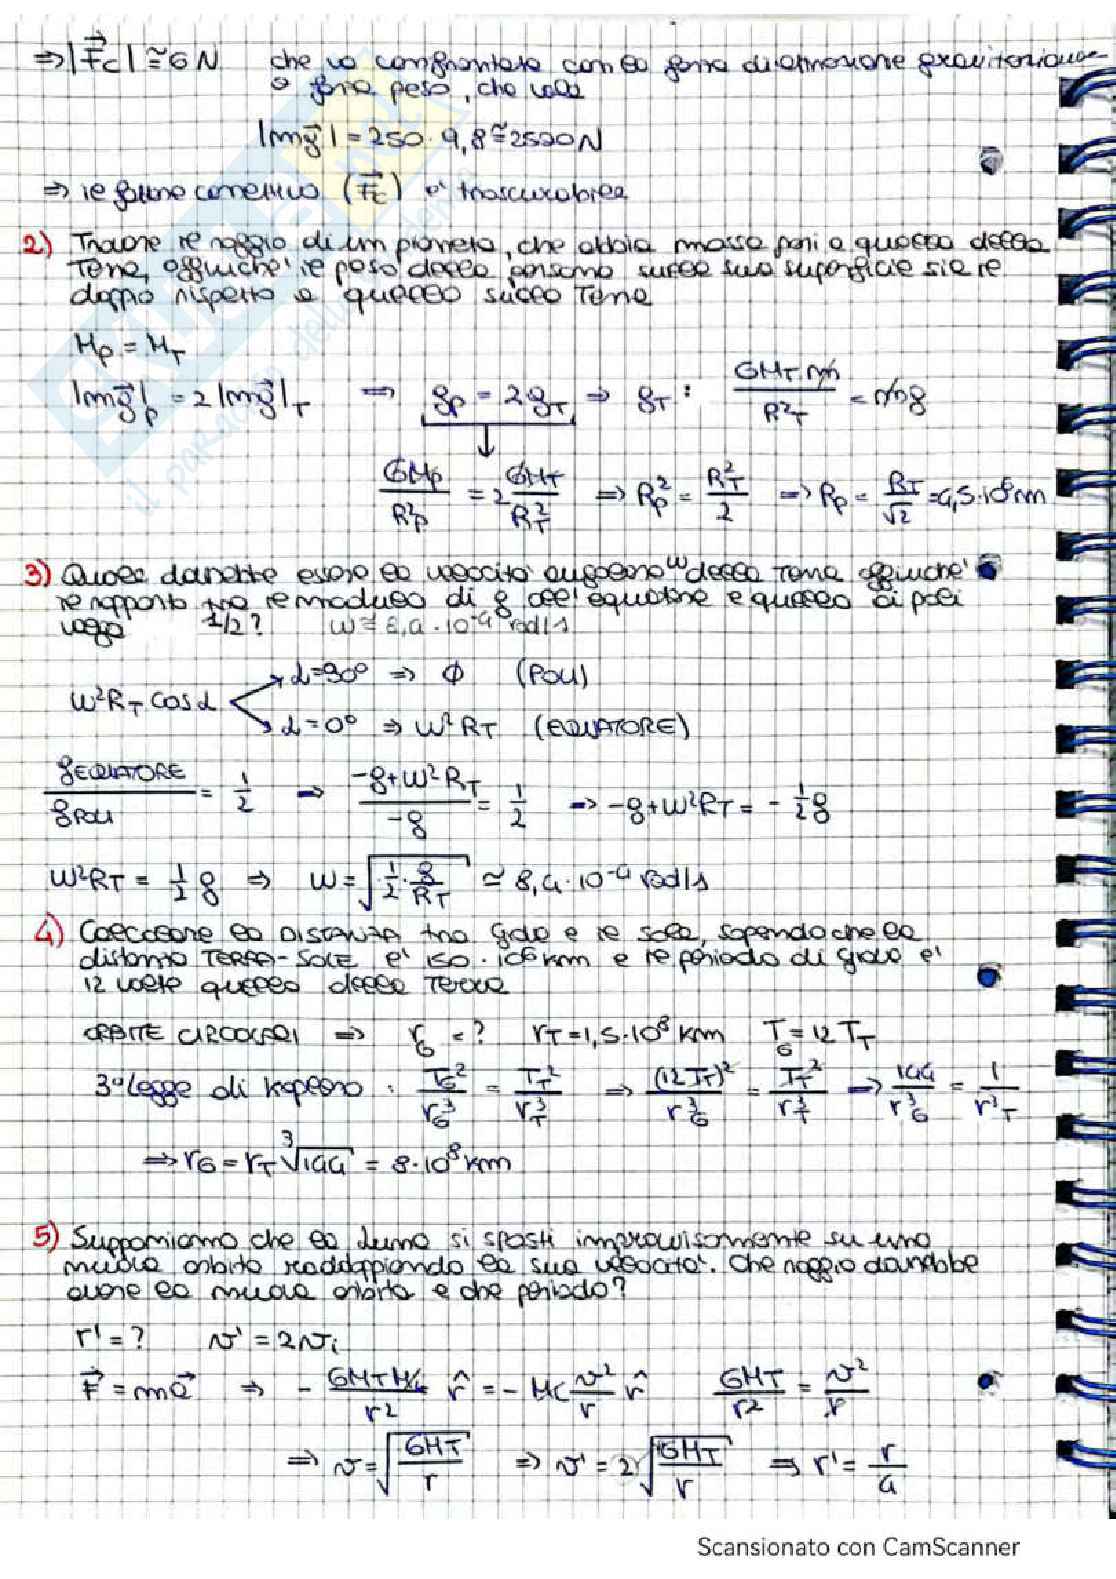 ⇒ |F⃗c| ≅ 6 N che va confrontata con la forza di attrazione gravitazionale
o forza peso, che vale
|mg⃗| = 250 · 9,8 ≅ 2500 N
⇒ il termine correttivo (F⃗c) e' trascurabile
2) Trovare il raggio di un pianeta, che abbia massa pari a quella della
Terra, affinche' il peso della persona sulla sua superficie sia il
doppio rispetto a quello sulla Terra
Mp = MT
|mg⃗|p = 2 |mg⃗|T ⇒ gp = 2gT ⇒ gT : GMT m / R²T = mg
GMp / R²p = 2 GMT / R²T ⇒ Rp² = RT² / 2 ⇒ Rp = RT / √2 = 4,5·10⁶ m
3) Quale dovrebbe essere la velocità angolare ω della Terra affinche'
il rapporto tra il modulo di g all'equatore e quello ai poli
valga 1/2? ω ≅ 8,4 · 10⁻⁴ rad/s
ω²RT cos α α=90° ⇒ ϕ (POLI)
α=0° ⇒ ω²RT (EQUATORE)
gEQUATORE / gPOLI = 1/2 ⇒ -g+ω²RT / -g = 1/2 ⇒ -g+ω²RT = - 1/2 g
ω²RT = 1/2 g ⇒ ω = √(1/2 · g/RT) ≅ 8,4·10⁻⁴ rad/s
4) Calcolare la DISTANZA tra Giove e il sole, sapendo che la
distanza TERRA-SOLE e' 150·10⁶ km e il periodo di Giove e'
12 volte quello della Terra
ORBITE CIRCOLARI ⇒ rG = ? rT = 1,5·10⁸ km TG = 12 TT
3° Legge di Keplero : TG² / rG³ = TT² / rT³ ⇒ (12 TT)² / rG³ = TT² / rT³ ⇒ 144 / r³G = 1 / r³T
⇒ rG = rT ∛144 = 8·10⁸ km
5) Supponiamo che la Luna si sposti improvvisamente su una
nuova orbita raddoppiando la sua velocita'. Che raggio dovrebbe
avere la nuova orbita e che periodo?
r' = ? v' = 2vi
F⃗ = ma⃗ ⇒ - GMT ML / r² r̂ = - ML v²/r r̂ GMT / r² = v² / r
⇒ v = √(GMT / r) ⇒ v' = 2√(GMT / r) ⇒ r' = r / 4
Scansionato con CamScanner